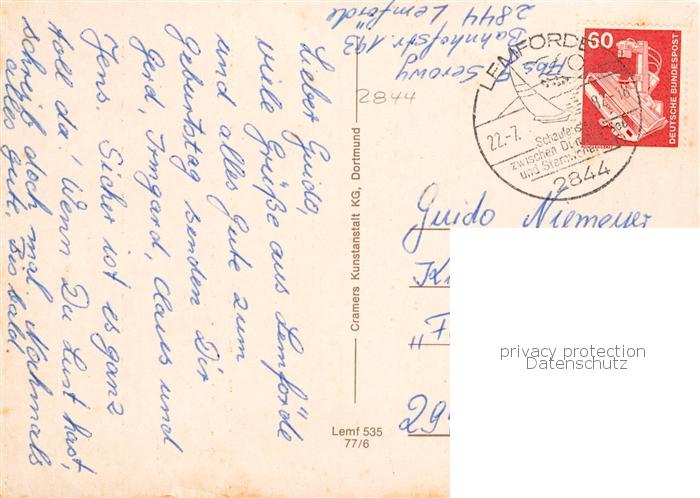 Lieber Guido,
viele Grüße aus Lemförde
und alles Gute zum
Geburtstag senden Dir
Gerd, Irmgard, Claus und
Jens. Sicher ist es ganz
toll da! Wenn Du Lust hast,
schreib doch mal. Nochmals
alles Gute, bis bald.
Abs. Serowy
Bahnhofstr. 193
2844 Lemförde
2844
Cramers Kunstanstalt KG, Dortmund
Lemf 535
77/6
LEMFÖRDE
22.-7.
zwischen
und
2844
60
DEUTSCHE BUNDESPOST
Guido Niemeyer
29
privacy protection
Datenschutz